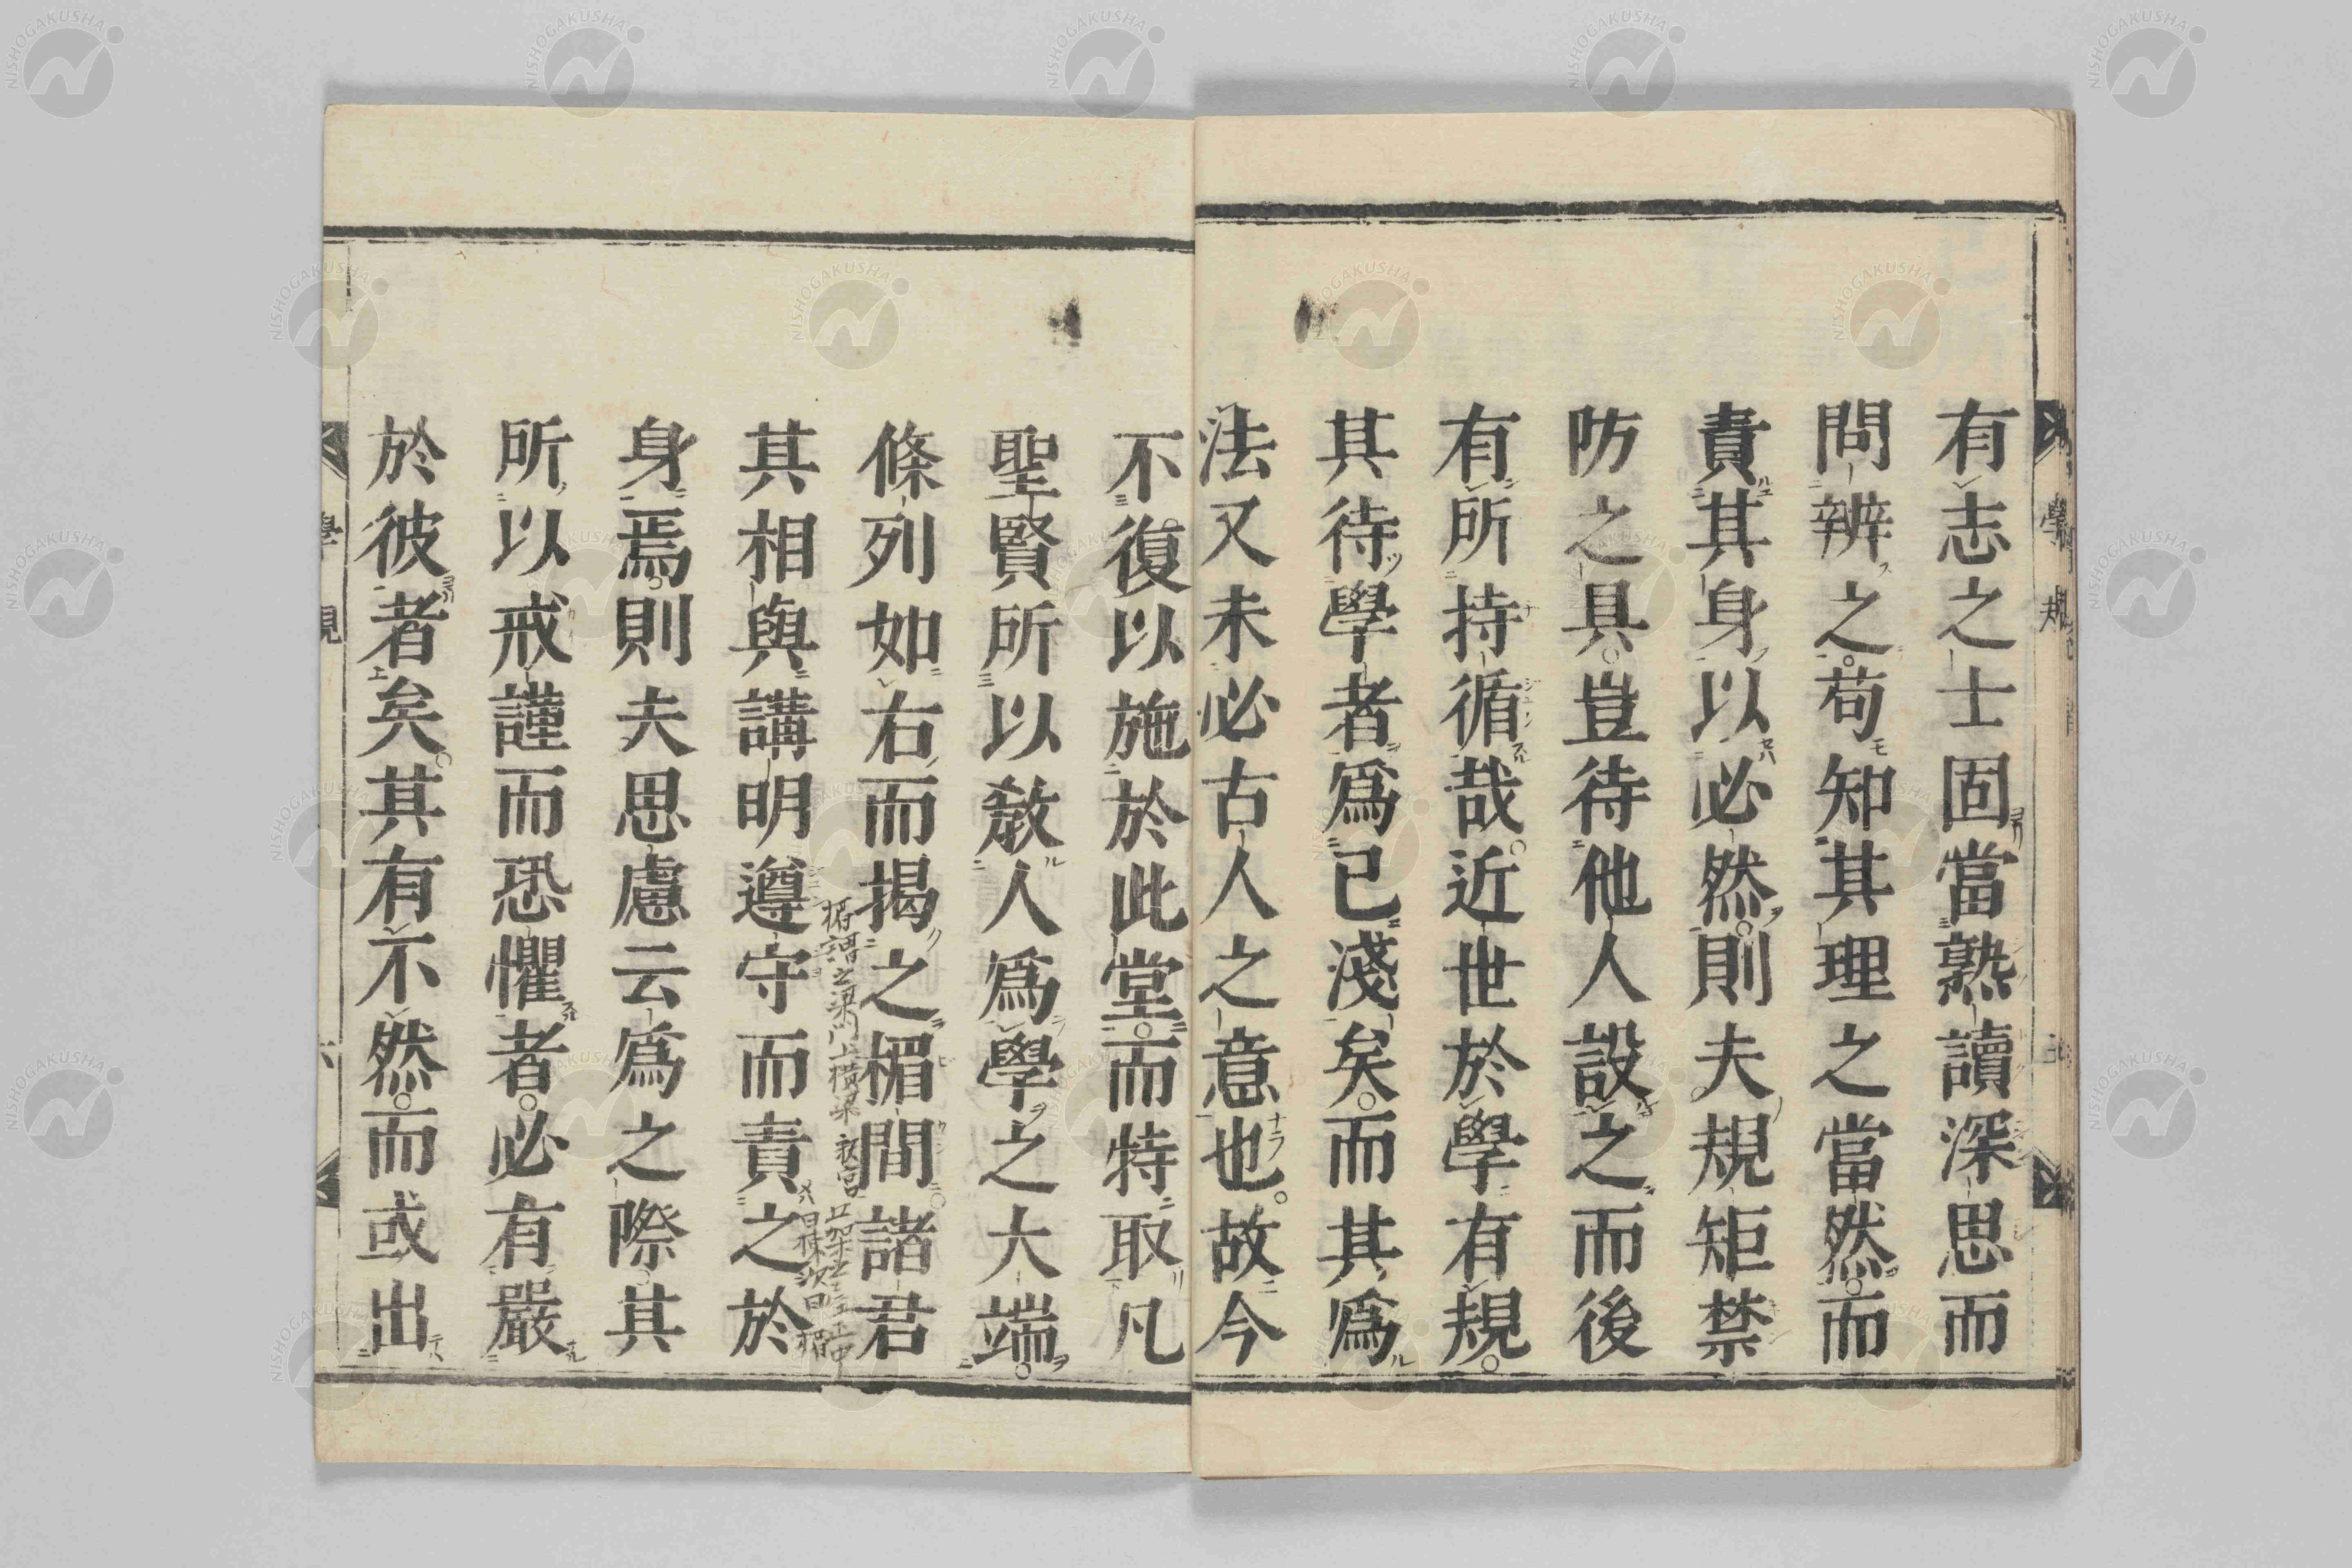 有志之士固當熟讀深思而
問辨之苟知其理之當然而
責其身以必然則夫規矩禁
防之具豈待他人設之而後
有所持循哉近世於學有規
其待學者爲已淺矣而其爲
法又未必古人之意也故今
不復以施於此堂而特取凡
聖賢所以敎人爲學之大端
條列如右而揭之楣間諸君
其相與講明遵守而責之於
身焉則夫思慮云爲之際其
所以戒謹而恐懼者必有嚴
於彼者矣其有不然而或出
學規
學規
NISHOGAKUSHA